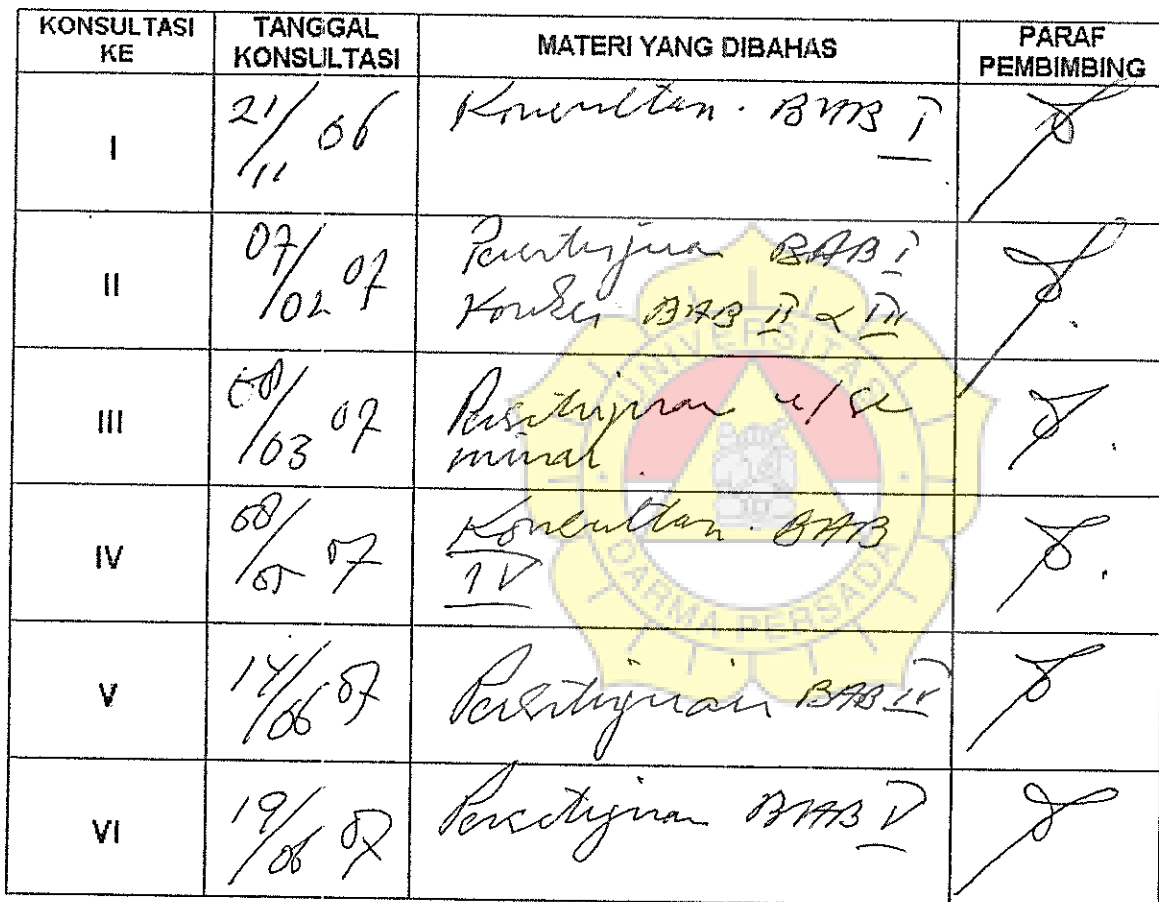 KONSULTASI KE TANGGAL KONSULTASI MATERI YANG DIBAHAS PARAF PEMBIMBING
I 21/11 06 Konsultan. BAB I
II 07/02 07 Persetujuan BAB I
Koreksi BAB II & III
III 08/03 07 Persetujuan u/ se
minar.
IV 08/05 07 Konsultan. BAB
IV
V 14/06 07 Persetujuan BAB IV
VI 19/06 07 Persetujuan BAB V
UNIVERSITAS
DARMA PERSADA